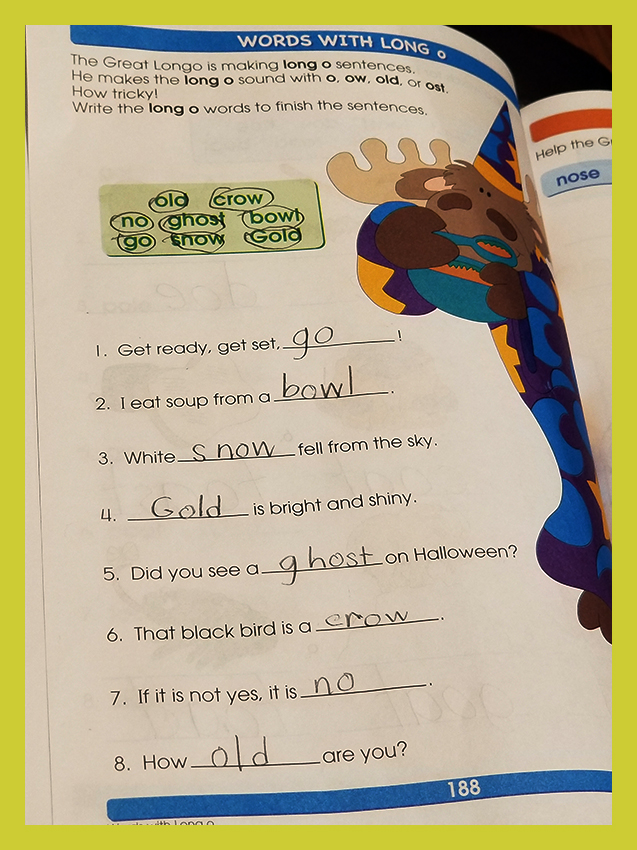 WORDS WITH LONG o
The Great Longo is making long o sentences.
He makes the long o sound with o, ow, old, or ost.
How tricky!
Write the long o words to finish the sentences.
old crow
no ghost bowl
go snow Gold
1. Get ready, get set, go!
2. I eat soup from a bowl.
3. White snow fell from the sky.
4. Gold is bright and shiny.
5. Did you see a ghost on Halloween?
6. That black bird is a crow.
7. If it is not yes, it is no.
8. How old are you?
188
Words with Long o
Help the
nose